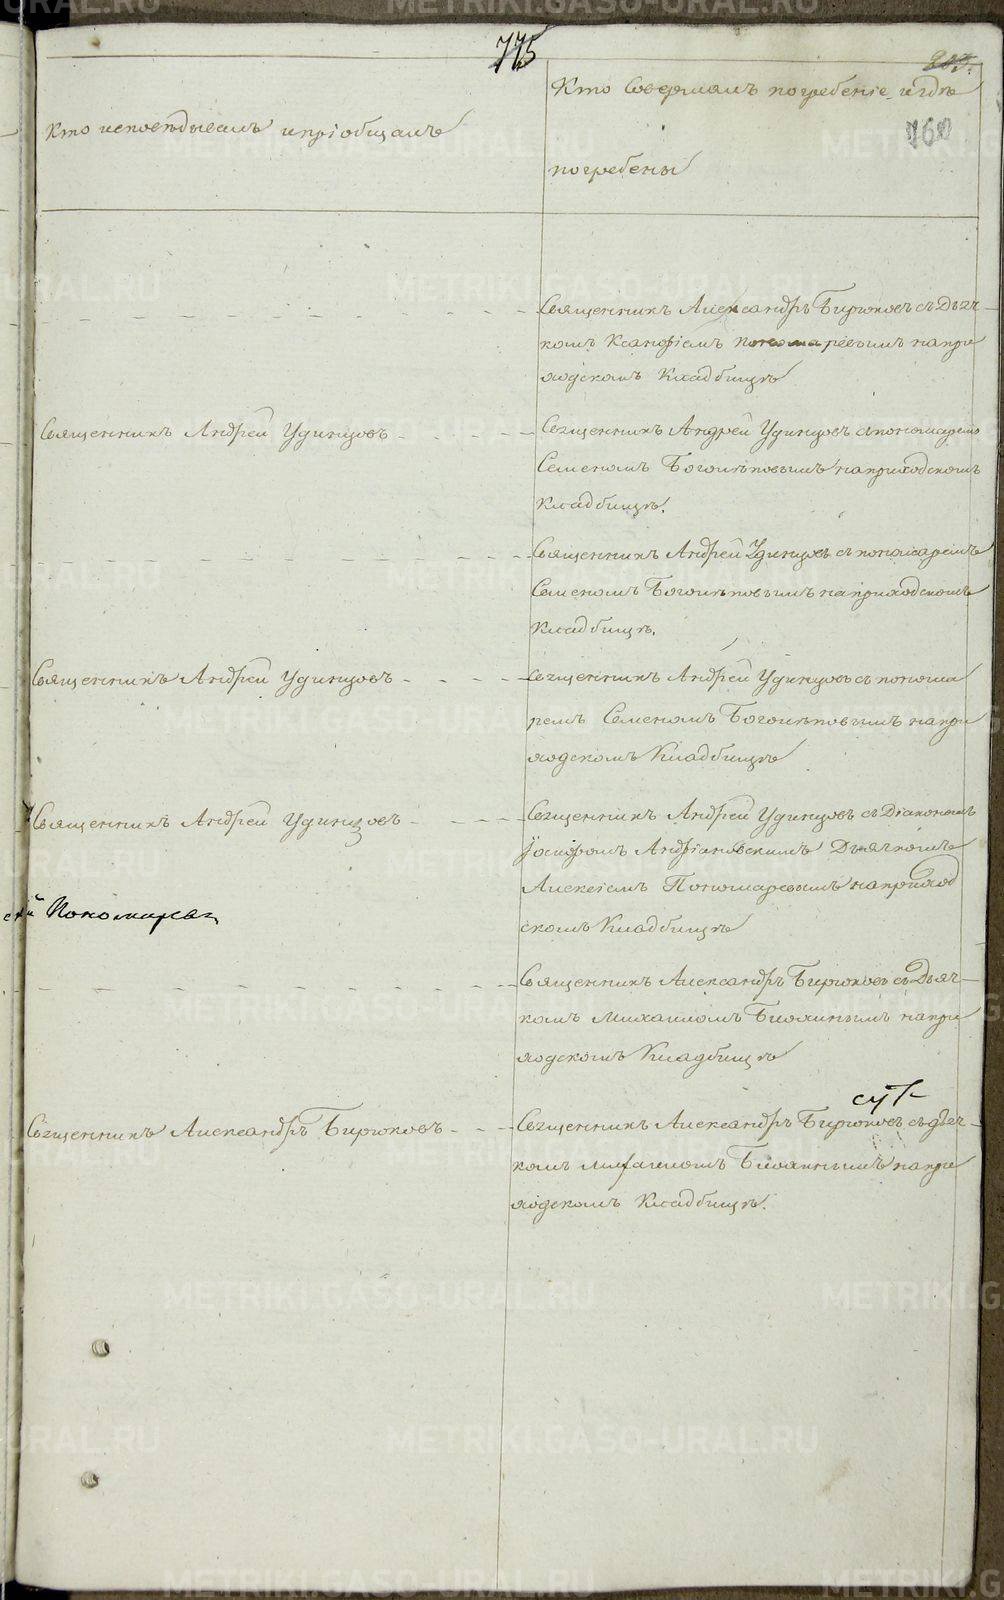 775
203.
760
Кто исповѣдывалъ и пріобщалъ
Кто совершалъ погребеніе, и гдѣ
погребены
Священникъ Александръ Бирюковъ съ Дьяч-
комъ Ксанфіемъ Пономаревымъ на при
ходскомъ Кладбищѣ
Священникъ Андрей Удинцовъ
Священникъ Андрей Удинцовъ с пономаремъ
Семеномъ Боголѣповымъ на приходскомъ
Кладбищѣ.
Священникъ Андрей Удинцовъ съ пономаремъ
Семеномъ Боголѣповымъ на приходскомъ
Кладбищѣ.
Священникъ Андрей Удинцовъ
Священникъ Андрей Удинцовъ съ понома
ремъ Семеномъ Боголѣповымъ на при
ходскомъ Кладбищѣ
Священникъ Андрей Удинцовъ
Священникъ Андрей Удинцовъ съ Діакономъ
Іосифомъ Андріановскимъ Дьячкомъ
Алексіемъ Пономаревымъ на приход
скомъ Кладбищѣ
Пономарев
Священникъ Александръ Бирюковъ съ Дьяч-
комъ Михаиломъ Бисинымъ на при
ходскомъ Кладбищѣ
Священникъ Александръ Бирюковъ
Священникъ Александръ Бирюковъ съ дьяч-
комъ Михаиломъ на при
ходскомъ Кладбищѣ.
METRIKI.GASO-URAL.RU